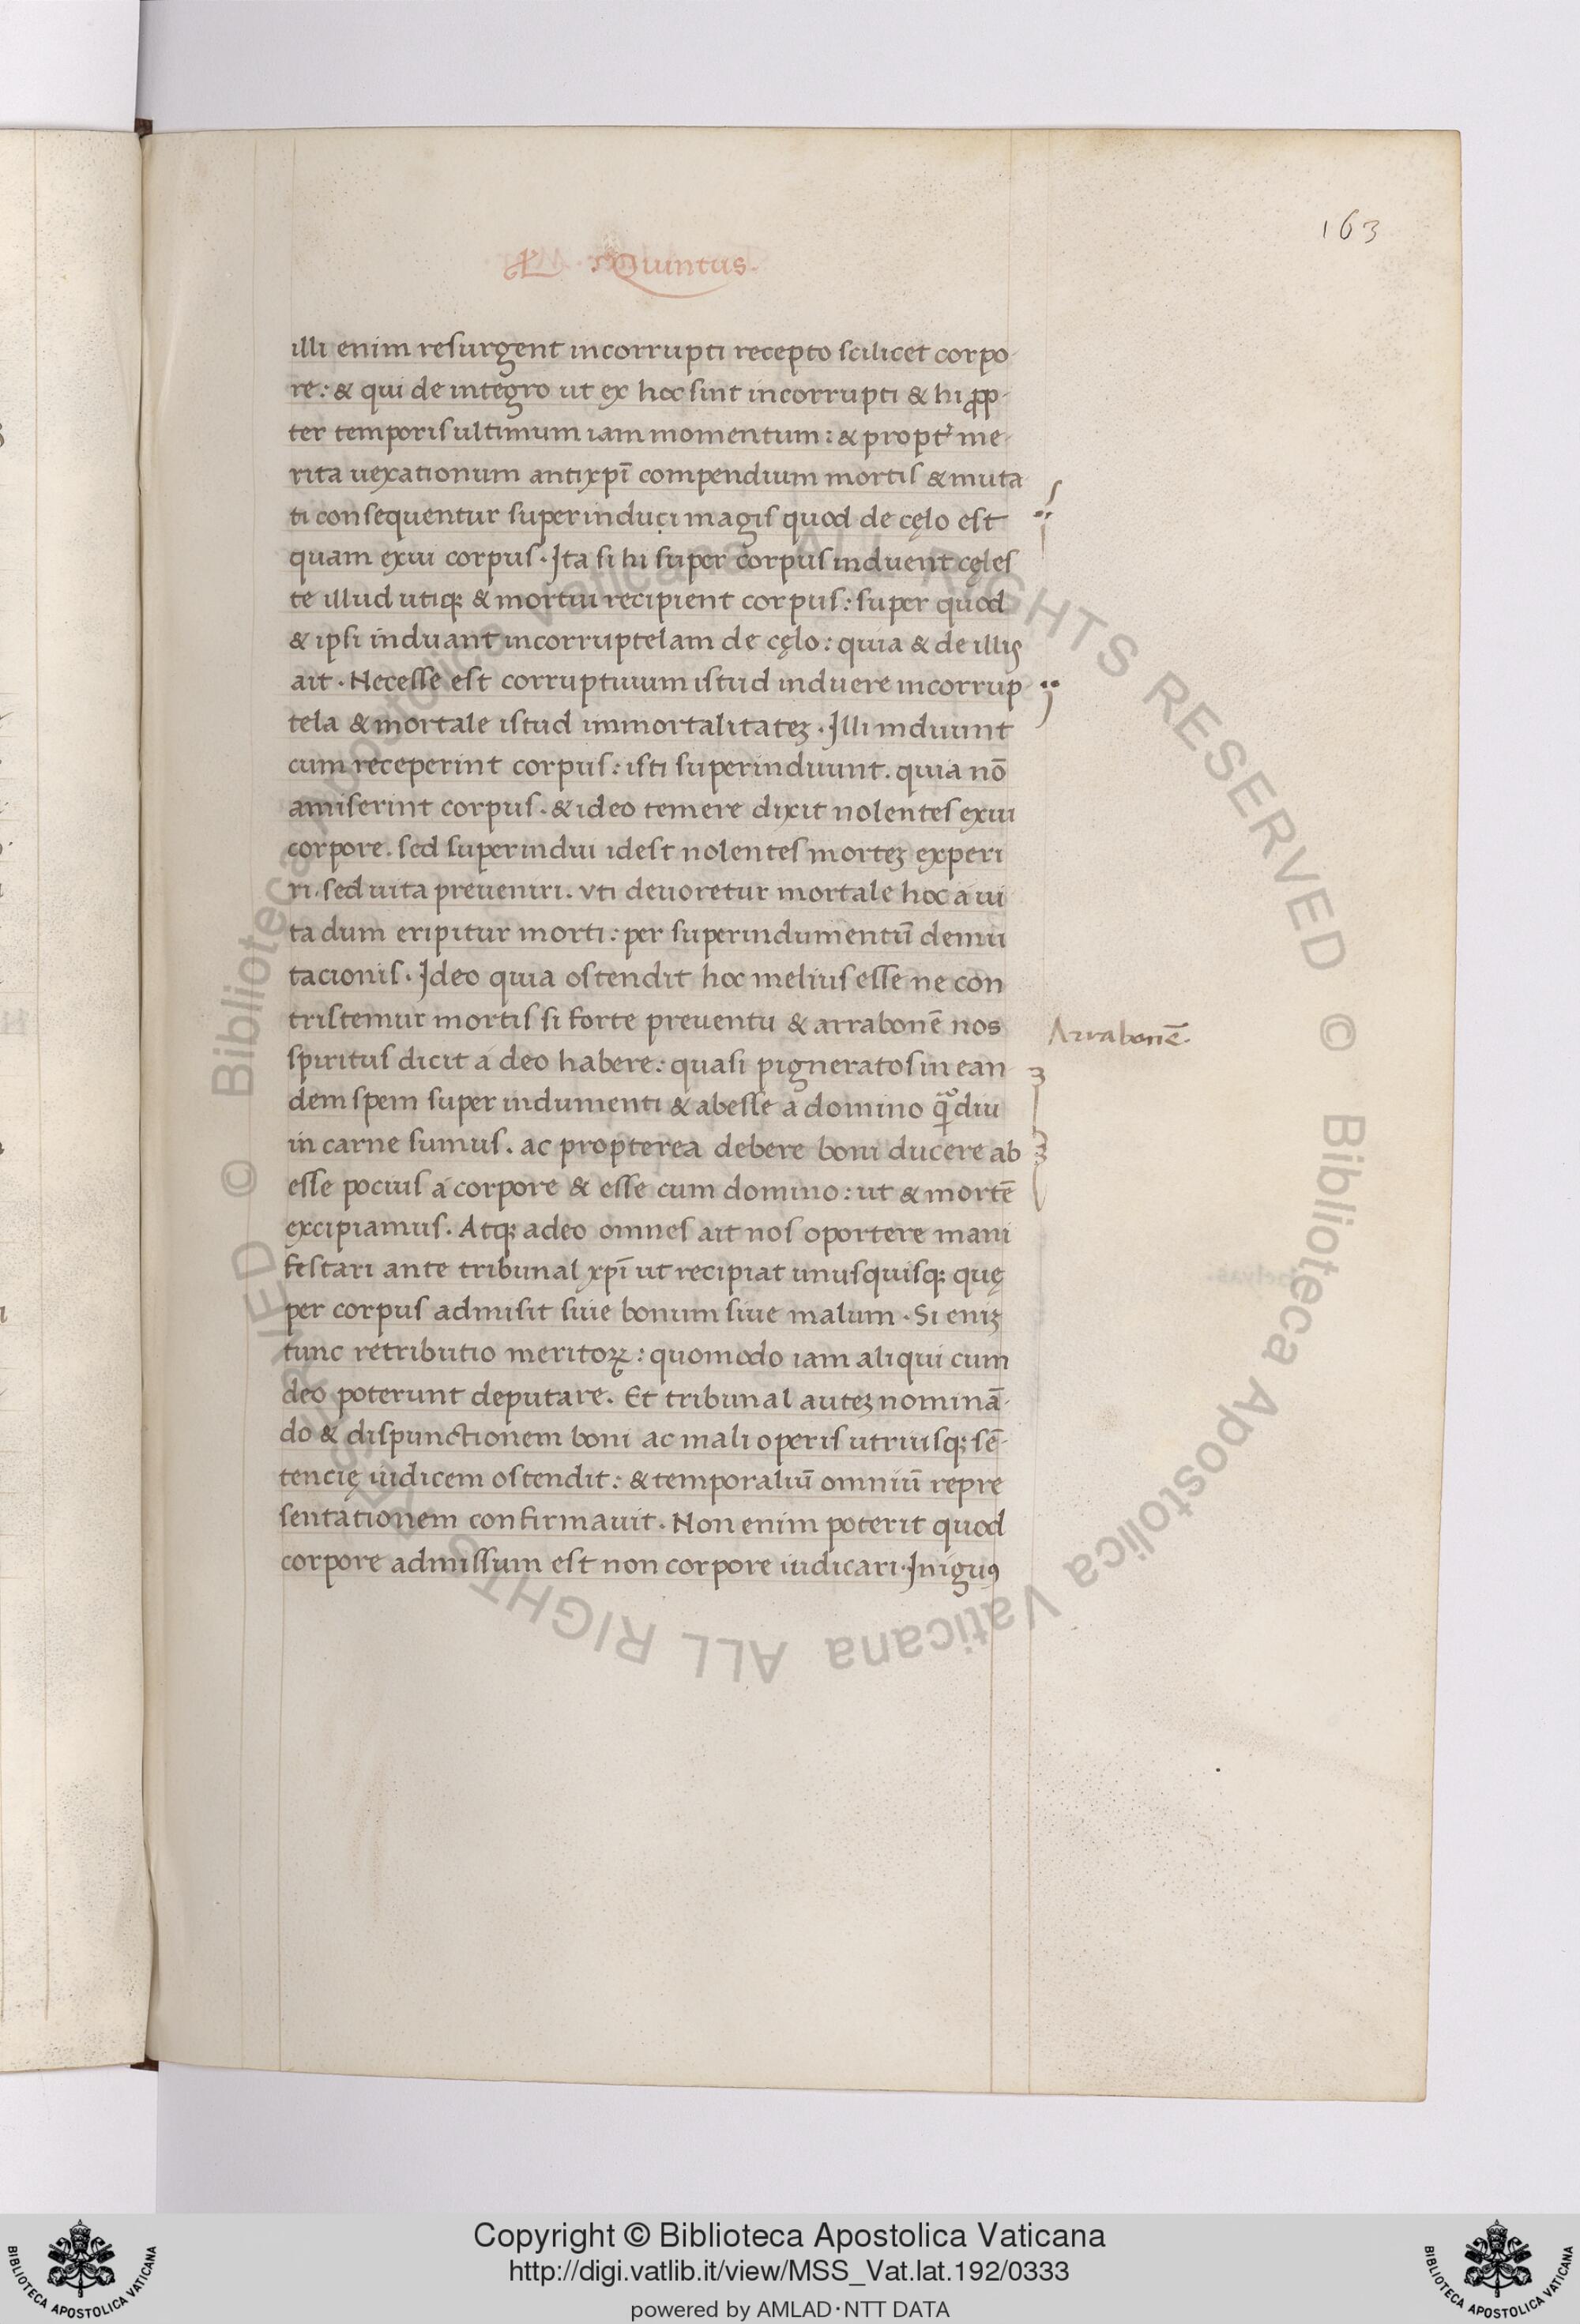 163
Quintus.
illi enim resurgent incorrupti recepto scilicet corpo-
re: & qui de integro ut ex hoc sint incorrupti & hi ꝓp-
ter temporis ultimum iam momentum: & propt' me-
rita uexationum antixp̄i compendium mortis & muta
ti consequentur superinduci magis quod de cęlo est
quam exui corpus. Ita si hi super corpus induent cęles
te illud utiqꝫ & mortui recipient corpus: super quod
& ipsi induant incorruptelam de cęlo: quia & de illis
ait. Necesse est corruptiuum istud induere incorrup-
tela & mortale istud immortalitateꝫ. Illi induunt
cum receperint corpus: isti superinduunt. quia nō
amiserint corpus. & ideo temere dixit nolentes exui
corpore. sed superindui idest nolentes morteꝫ experi
ri. sed uita preueniri. vti deuoretur mortale hoc a ui
ta dum eripitur morti: per superindumentū demu
tacionis. Ideo quia ostendit hoc melius esse ne con
tristemur mortis si forte preuentu & arrabonē nos
Arrabonē.
spiritus dicit a deo habere: quasi pigneratos in ean-
dem spem super indumenti & abesse a domino diu
in carne sumus. ac propterea debere boni ducere ab
esse pocius a corpore & esse cum domino: ut & mortē
excipiamus. Atqꝫ adeo omnes ait nos oportere mani
festari ante tribunal xp̄i ut recipiat unusquisqꝫ quę
per corpus admisit siue bonum siue malum. Si eniꝫ
tunc retributio meritoꝝ: quomodo iam aliqui cum
deo poterunt deputare. Et tribunal auteꝫ nominā-
do & dispunctionem boni ac mali operis utriusqꝫ sē-
tencię iudicem ostendit: & temporaliū omniū repre
sentationem confirmauit. Non enim poterit quod
corpore admissum est non corpore iudicari. Iniguꝰ
© Biblioteca Apostolica Vaticana ALL RIGHTS RESERVED © Biblioteca Apostolica Vaticana ALL RIGHTS RESERVED
Copyright © Biblioteca Apostolica Vaticana
http://digi.vatlib.it/view/MSS_Vat.lat.192/0333
powered by AMLAD·NTT DATA
BIBLIOTECA APOSTOLICA VATICANA
BIBLIOTECA APOSTOLICA VATICANA